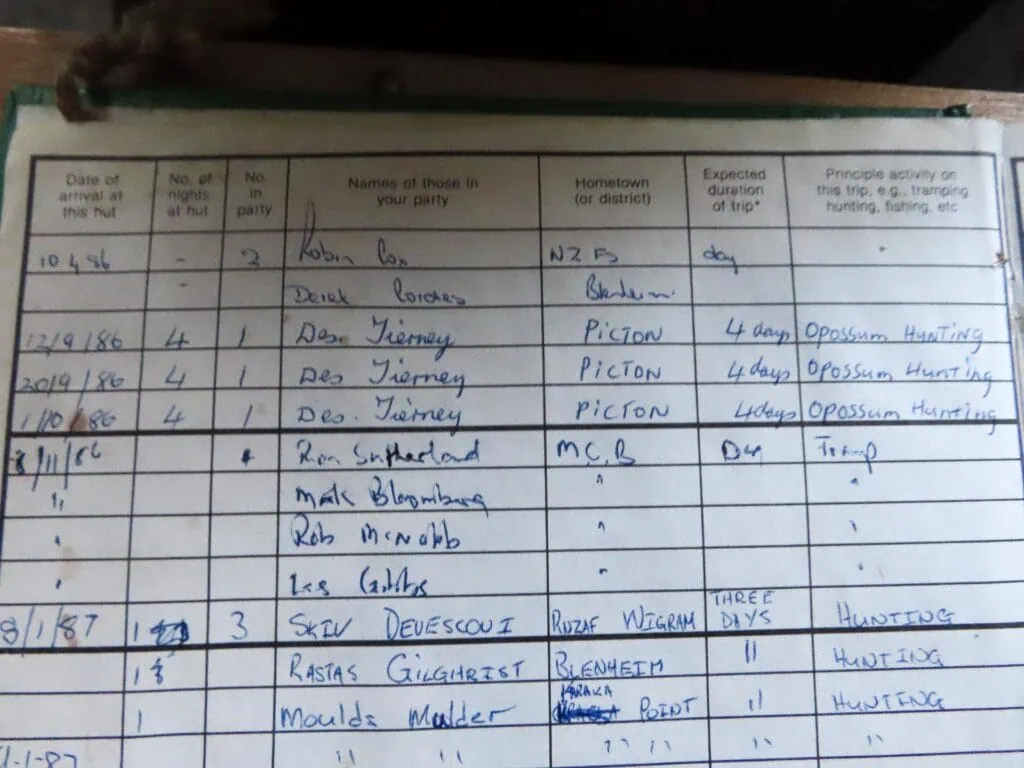 Date of arrival at this hut No. of nights at hut No. in party Names of those in your party Hometown (or district) Expected duration of trip* Principle activity on this trip, e.g., tramping hunting, fishing, etc
10 4 86 - 2 Robin Cox NZFS day
Derek Blenheim
12/9/86 4 1 Des. Tierney PICTON 4 days OPOSSUM HUNTING
20/9/86 4 1 Des Tierney PICTON 4 days OPOSSUM HUNTING
1/10/86 4 1 Des. Tierney PICTON 4 days OPOSSUM HUNTING
8/11/86 4 Ron Sutherland M.C.B Day Tramp
" Mark Bloomburg " "
" Rob McNabb " "
" Les " "
8/1/87 1 3 SKIV DEVESCOVI RNZAF WIGRAM THREE DAYS HUNTING
1 RASTAS GILGHRIST BLENHEIM " HUNTING
1 Moulds Mulder KARAKA POINT " HUNTING
1-1-87 " " " " " "